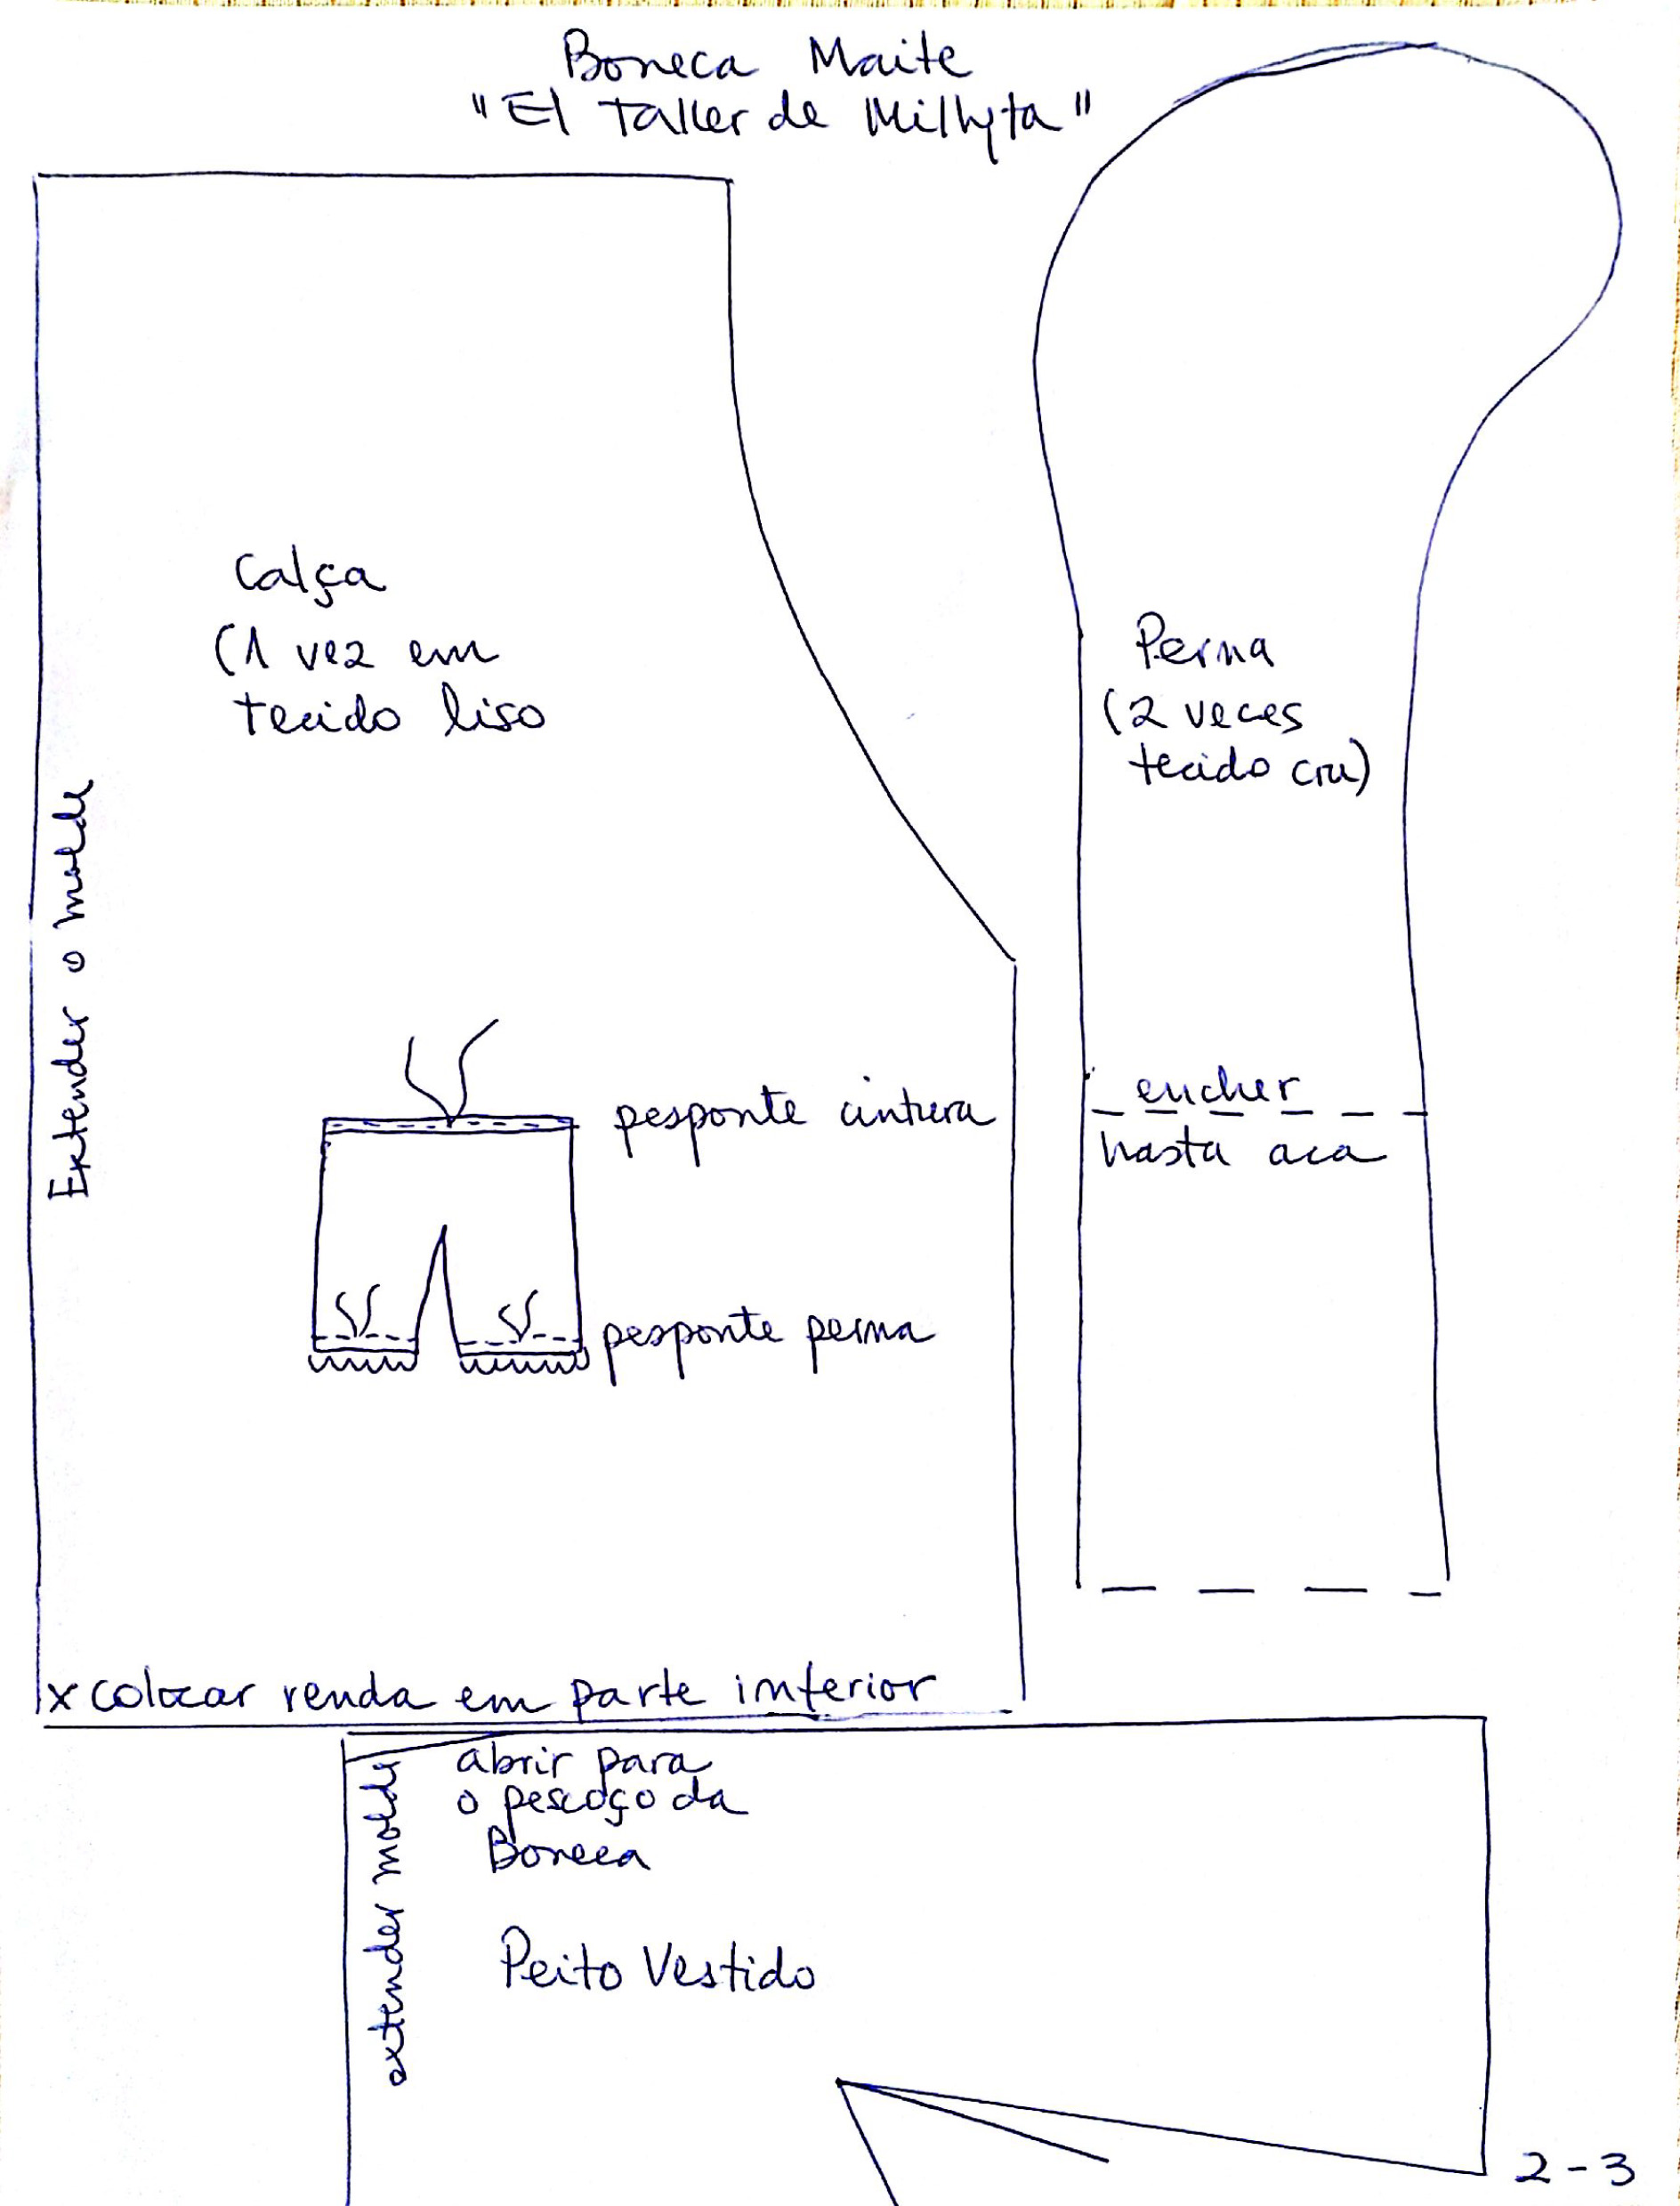 Boneca Maite
"El Taller de Milhyta"
Calça
(1 vez em
tecido liso
Extender o molde
pesponte cintura
pesponte perna
x colocar renda em parte inferior
Perna
(2 veces
tecido cru)
encher
hasta aca
extender molde
abrir para
o pescoço da
Boneca
Peito Vestido
2-3